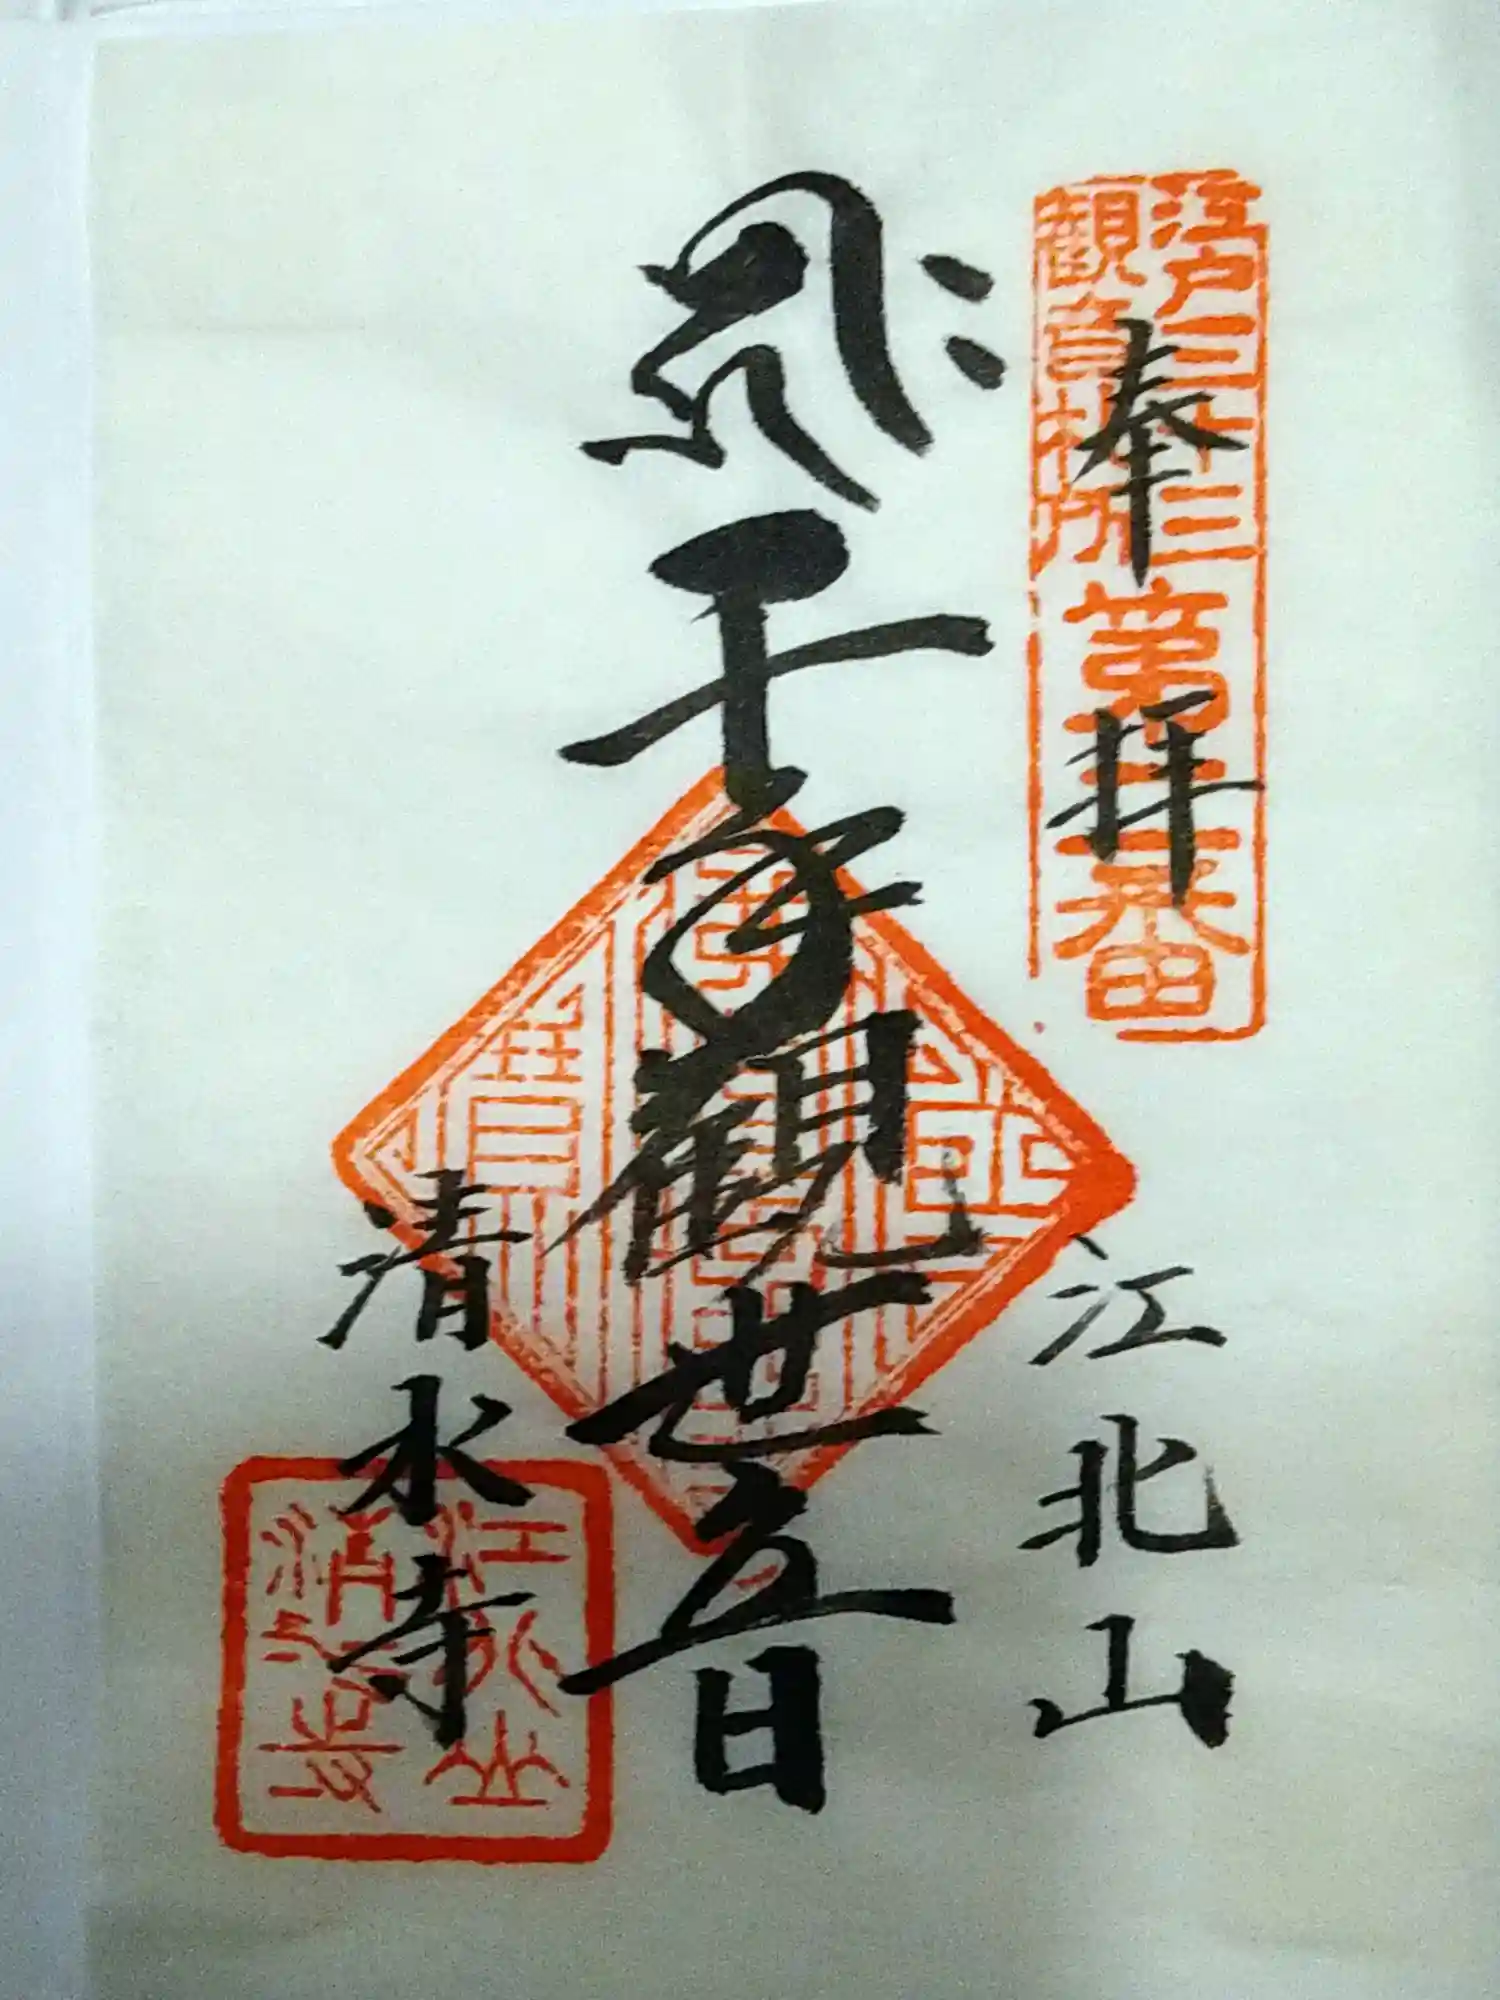 江戸三十三
觀音札所
第二番
奉拝
江北山
ह्रीः
千手觀世音
清水寺
江北山
清水寺